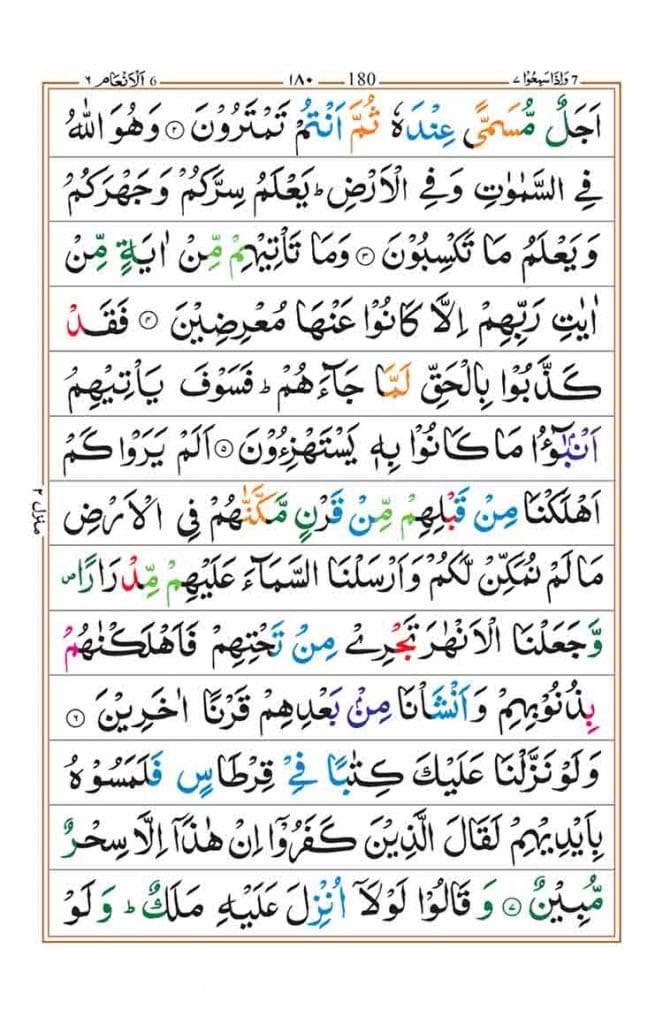 وَاِذَا سَمِعُوْا ٧ 7 180 ١٨٠ 6 اَلْاَنْعَام ٦
اَجَلٌ مُّسَمًّى عِنْدَهٗ ثُمَّ اَنْتُمْ تَمْتَرُوْنَ ﴿٢﴾ وَهُوَ اللّٰهُ
فِي السَّمٰوٰتِ وَفِي الْاَرْضِ ؕ يَعْلَمُ سِرَّكُمْ وَجَهْرَكُمْ
وَيَعْلَمُ مَا تَكْسِبُوْنَ ﴿٣﴾ وَمَا تَاْتِيْهِمْ مِّنْ اٰيَةٍ مِّنْ
اٰيٰتِ رَبِّهِمْ اِلَّا كَانُوْا عَنْهَا مُعْرِضِيْنَ ﴿٤﴾ فَقَدْ
كَذَّبُوْا بِالْحَقِّ لَمَّا جَآءَهُمْ ؕ فَسَوْفَ يَاْتِيْهِمْ
اَنْۢبٰٓؤُا مَا كَانُوْا بِهٖ يَسْتَهْزِءُوْنَ ﴿٥﴾ اَلَمْ يَرَوْا كَمْ
اَهْلَكْنَا مِنْ قَبْلِهِمْ مِّنْ قَرْنٍ مَّكَّنّٰهُمْ فِي الْاَرْضِ
مَا لَمْ نُمَكِّنْ لَّكُمْ وَاَرْسَلْنَا السَّمَآءَ عَلَيْهِمْ مِّدْرَارًا ۪
وَّجَعَلْنَا الْاَنْهٰرَ تَجْرِيْ مِنْ تَحْتِهِمْ فَاَهْلَكْنٰهُمْ
بِذُنُوْبِهِمْ وَاَنْشَاْنَا مِنْۢ بَعْدِهِمْ قَرْنًا اٰخَرِيْنَ ﴿٦﴾
وَلَوْ نَزَّلْنَا عَلَيْكَ كِتٰبًا فِيْ قِرْطَاسٍ فَلَمَسُوْهُ
بِاَيْدِيْهِمْ لَقَالَ الَّذِيْنَ كَفَرُوْٓا اِنْ هٰذَآ اِلَّا سِحْرٌ
مُّبِيْنٌ ﴿٧﴾ وَقَالُوْا لَوْلَآ اُنْزِلَ عَلَيْهِ مَلَكٌ ؕ وَلَوْ
منزل ٢